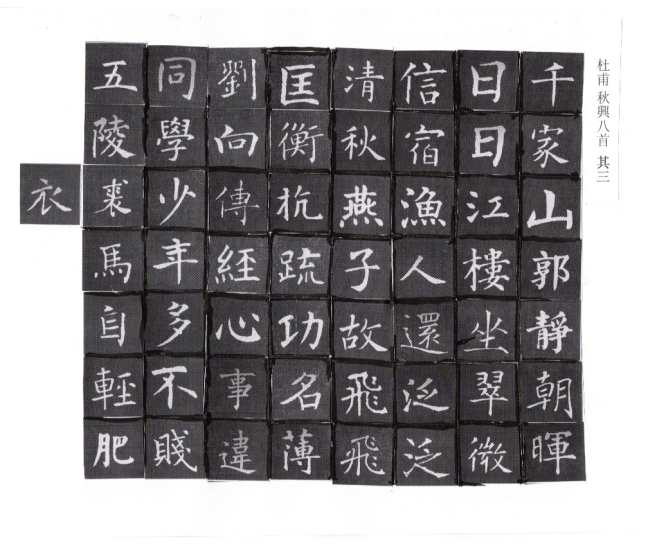 杜甫 秋興八首 其三
千家山郭靜朝暉
日日江樓坐翠微
信宿漁人還泛泛
清秋燕子故飛飛
匡衡抗疏功名薄
劉向傳經心事違
同學少年多不賤
五陵裘馬自輕肥
衣